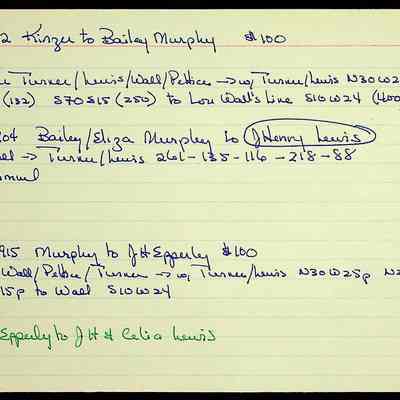 2 Kinzer to Bailey Murphy $100
Turner/Lewis/Wall/Peltier → w, Turner/Lewis N30W2
(132) S70S15 (250) to Lou Wall's Line S10W24 (400
04 Bailey/Eliza Murphy to J Henry Lewis
→ Turner/Lewis 261-135-116-218-88
915 Murphy to J H Epperly $100
Wall/Peltier/Turner → w, Turner/Lewis N30W25p N2
15p to Wall S10W24
Epperly to J H & Celia Lewis